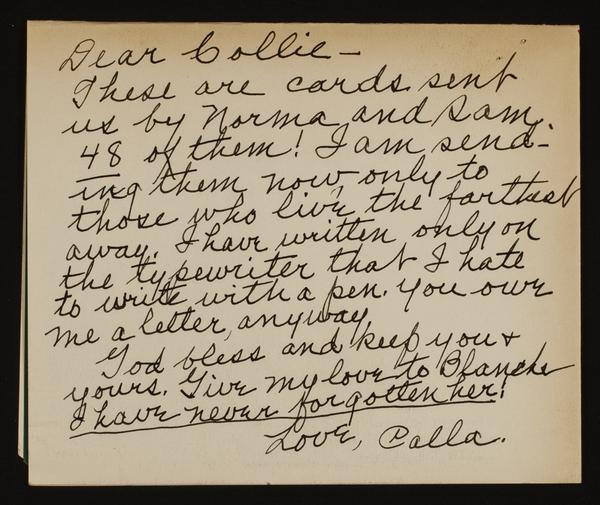 Dear Collie—
These are cards sent
us by Norma and Sam.
48 of them! I am send-
ing them now, only to
those who live the farthest
away. I have written only on
the typewriter that I hate
to write with a pen. You owe
me a letter, anyway.
God bless and keep you +
yours. Give my love to Blanche
I have never forgotten her!
Love, Calla.